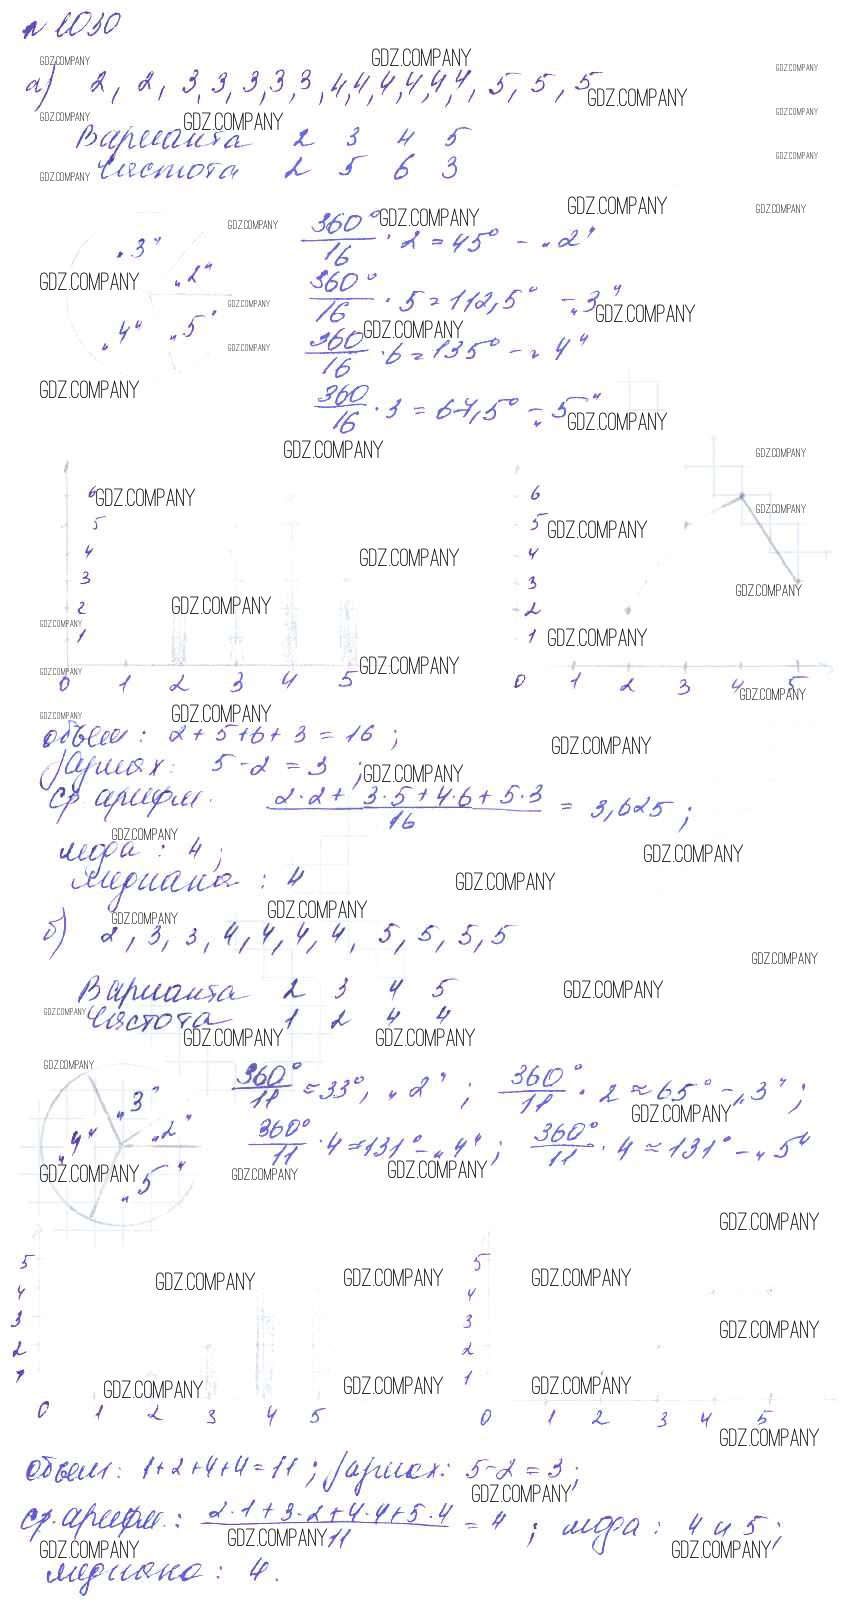 № 1030
а) 2, 2, 3, 3, 3, 3, 3, 4, 4, 4, 4, 4, 4, 5, 5, 5
Варианта 2 3 4 5
Частота 2 5 6 3
„3“
„2“
„4“
„5“
360°/16 · 2 = 45° – „2“
360°/16 · 5 = 112,5° – „3“
360/16 · 6 = 135° – „4“
360/16 · 3 = 67,5° – „5“
6
5
4
3
2
1
0 1 2 3 4 5
6
5
4
3
2
1
0 1 2 3 4 5
объем: 2 + 5 + 6 + 3 = 16;
размах: 5 - 2 = 3;
ср арифм. (2·2 + 3·5 + 4·6 + 5·3)/16 = 3,625;
мода: 4;
медиана: 4
б) 2, 3, 3, 4, 4, 4, 4, 5, 5, 5, 5
Варианта 2 3 4 5
Частота 1 2 4 4
„3“
„2“
„4“
„5“
360°/11 ≈ 33°, „2“; 360°/11 · 2 ≈ 65° – „3“;
360°/11 · 4 ≈ 131° – „4“; 360°/11 · 4 ≈ 131° – „5“
5
4
3
2
1
0 1 2 3 4 5
5
4
3
2
1
0 1 2 3 4 5
объем: 1+2+4+4=11; размах: 5-2=3;
ср. арифм.: (2·1+3·2+4·4+5·4)/11 = 4; мода: 4 и 5;
медиана: 4.
GDZ.COMPANY